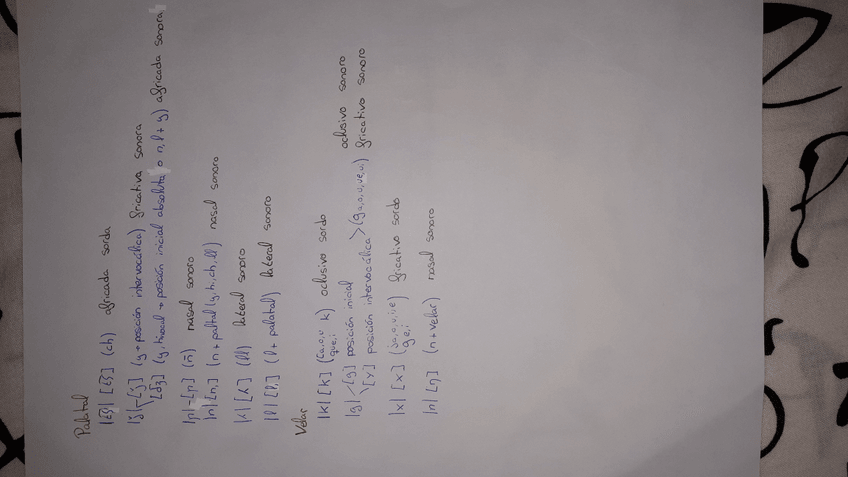 Palatal
|t͡ʃ| [t͡ʃ] (ch) africada sorda
|ʝ| [ʝ] (y + posición intervocálica) fricativa sonora
[d͡ʒ] (y, hivocal + posición inicial absoluta o n, l + y) africada sonora
|ɲ| - [ɲ] (ñ) nasal sonoro
|n| [n,] (n + paltal (y, hi, ch, ll) nasal sonoro
|ʎ| [ʎ] (ll) lateral sonoro
|l| [l,] (l + palatal) lateral sonoro
Velar
|k| [k] (ca,o,u que,i k) oclusivo sordo
|g| [g] posición inicial oclusivo sonoro
[ɣ] posición intervocálica > (ga,o,u,ue,ui) fricativo sonoro
|x| [x] (ja,o,u,i,e ge,i) fricativo sordo
|n| [ŋ] (n + velar) nasal sonoro